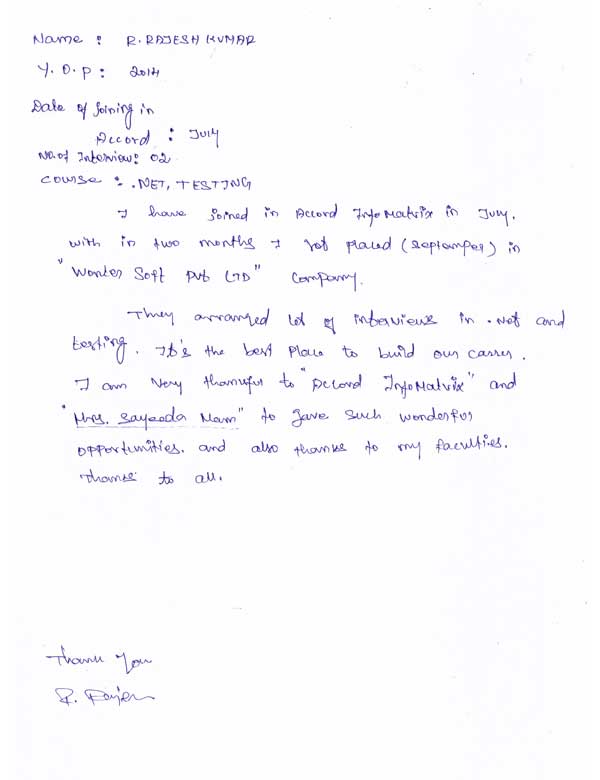 Name : R. RAJESH KUMAR
Y. O. P : 2014
Date of Joining in
Accord : July
No. of Interview : 02
Course : .NET, TESTING
I have joined in Accord InfoMatrix in July.
with in two months I Got Placed (September) in
"Wonter Soft Pvt LTD" Company.
They arranged lot of interviews in .Net and
testing. It's the best Place to build our career.
I am Very thankful to "Accord InfoMatrix" and
"Mrs. Sayeeda Mam" to gave such wonderful
opportunities. and also thanks to my faculties.
Thanks to all.
Thank You
R. Rajesh